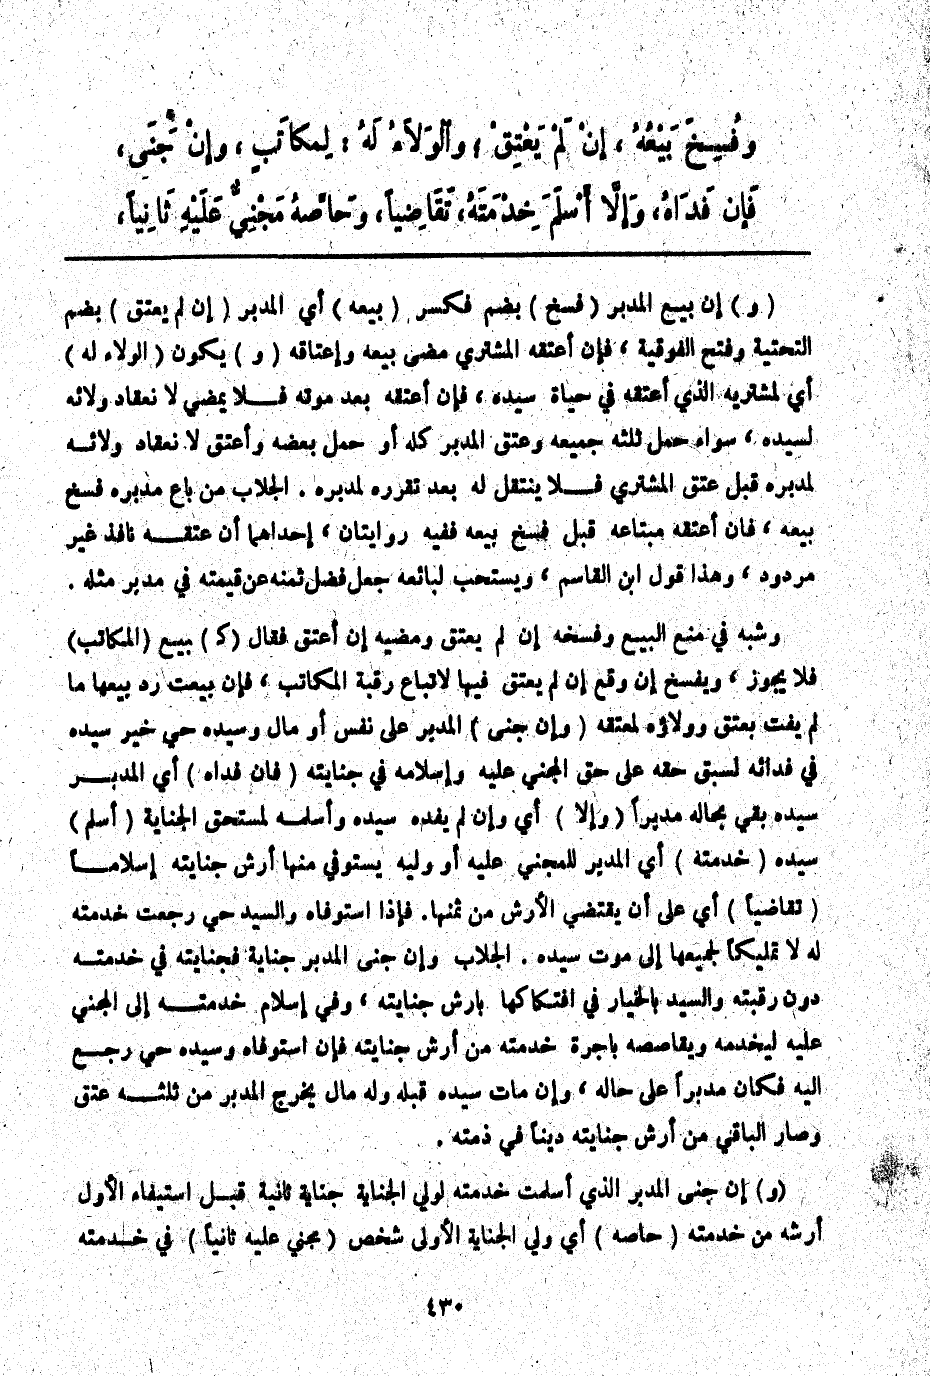 وَفُسِخَ بَيْعُهُ ، إِنْ لَمْ يَعْتِقْ ، وَالْوَلَاءُ لَهُ ؛ لِمكَاتَبٍ ، وإِنْ جَنَى ،
فَإِن فَدَاهُ، وَإِلَّا أَسْلَمَ خِدْمَتَهُ، تَقَاضِياً، وحَاصَّهُ مَجْنِيٌّ عَلَيْهِ ثَانِياً،
( و ) إن بيع المدبر ( فسخ ) بضم فكسر ( بيعه ) أي المدبر ( إن لم يعتق ) بضم
التحتية وفتح الفوقية ، فإن أعتقه المشتري مضى بيعه وإعتاقه ( و ) يكون ( الولاء له )
أي لمشتريه الذي أعتقه في حياة سيده ، فإن أعتقه بعد موته فـــلا يمضي لا نعقاد ولائه
لسيده ، سواء حمل ثلثه جميعه وعتق المدبر كله أو حمل بعضه وأعتق لا نعقاد ولائــه
لمدبره قبل عتق المشتري فـــلا ينتقل له بعد تقرره لمدبره . الجلاب من باع مدبره فسخ
بيعه ، فان أعتقه مبتاعه قبل فسخ بيعه ففيه روايتان ، إحداهما أن عتقـــه نافذ غير
مردود ، وهذا قول ابن القاسم ، ويستحب لبائعه جعل فضل ثمنه عن قيمته في مدبر مثله .
وشبه في منع البيع وفسخه إن لم يعتق ومضيه إن أعتق فقال (كـ ) بيع (المكاتب)
فلا يجوز ، ويفسخ إن وقع إن لم يعتق فيها لاتباع رقبة المكاتب ، فإن بيعت رد بيعها ما
لم يفت بعتق وولاؤه لمعتقه ( وإن جنى ) المدبر على نفس أو مال وسيده حي خير سيده
في فدائه لسبق حقه على حق المجني عليه وإسلامه في جنايته ( فان فداه ) أي المدبـــر
سيده بقي بحاله مدبراً ( وإلا ) أي وإن لم يفده سيده وأسلمــه لمستحق الجناية ( أسلم )
سيده ( خدمتة ) أي المدبر للمجني عليه أو وليه يستوفي منها أرش جنايته إسلامـــاً
( تقاضياً ) أي على أن يقتضي الأرش من ثمنها. فإذا استوفاه والسيد حي رجعت خدمته
له لا تمليكاً لجميعها إلى موت سيده . الجلاب وإن جنى المدبر جناية فجنايته في خدمتــه
دون رقبته والسيد بالخيار في افتكاكها بارش جنايته ، وفي إسلام خدمتـــه إلى المجني
عليه ليخدمه ويقاصصه باجرة خدمته من أرش جنايته فإن استوفاه وسيده حي رجــع
اليه فكان مدبراً على حاله ، وإن مات سيده قبله وله مال يخرج المدبر من ثلثـــه عتق
وصار الباقي من أرش جنايته ديناً في ذمته .
(و) إن جنى المدبر الذي أسلمت خدمته لولي الجناية جناية ثانية قبـل استيفاء الأول
أرشه من خدمته ( حاصه ) أي ولي الجناية الأولى شخص ( مجني عليه ثانياً ) في خــدمته
٤٣٠